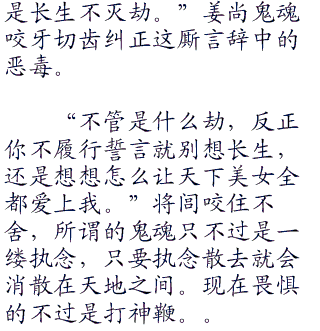 是长生不灭劫。”姜尚鬼魂
咬牙切齿纠正这厮言辞中的
恶毒。
“不管是什么劫，反正
你不履行誓言就别想长生，
还是想想怎么让天下美女全
都爱上我。”将闾咬住不
舍，所谓的鬼魂只不过是一
缕执念，只要执念散去就会
消散在天地之间。现在畏惧
的不过是打神鞭。。